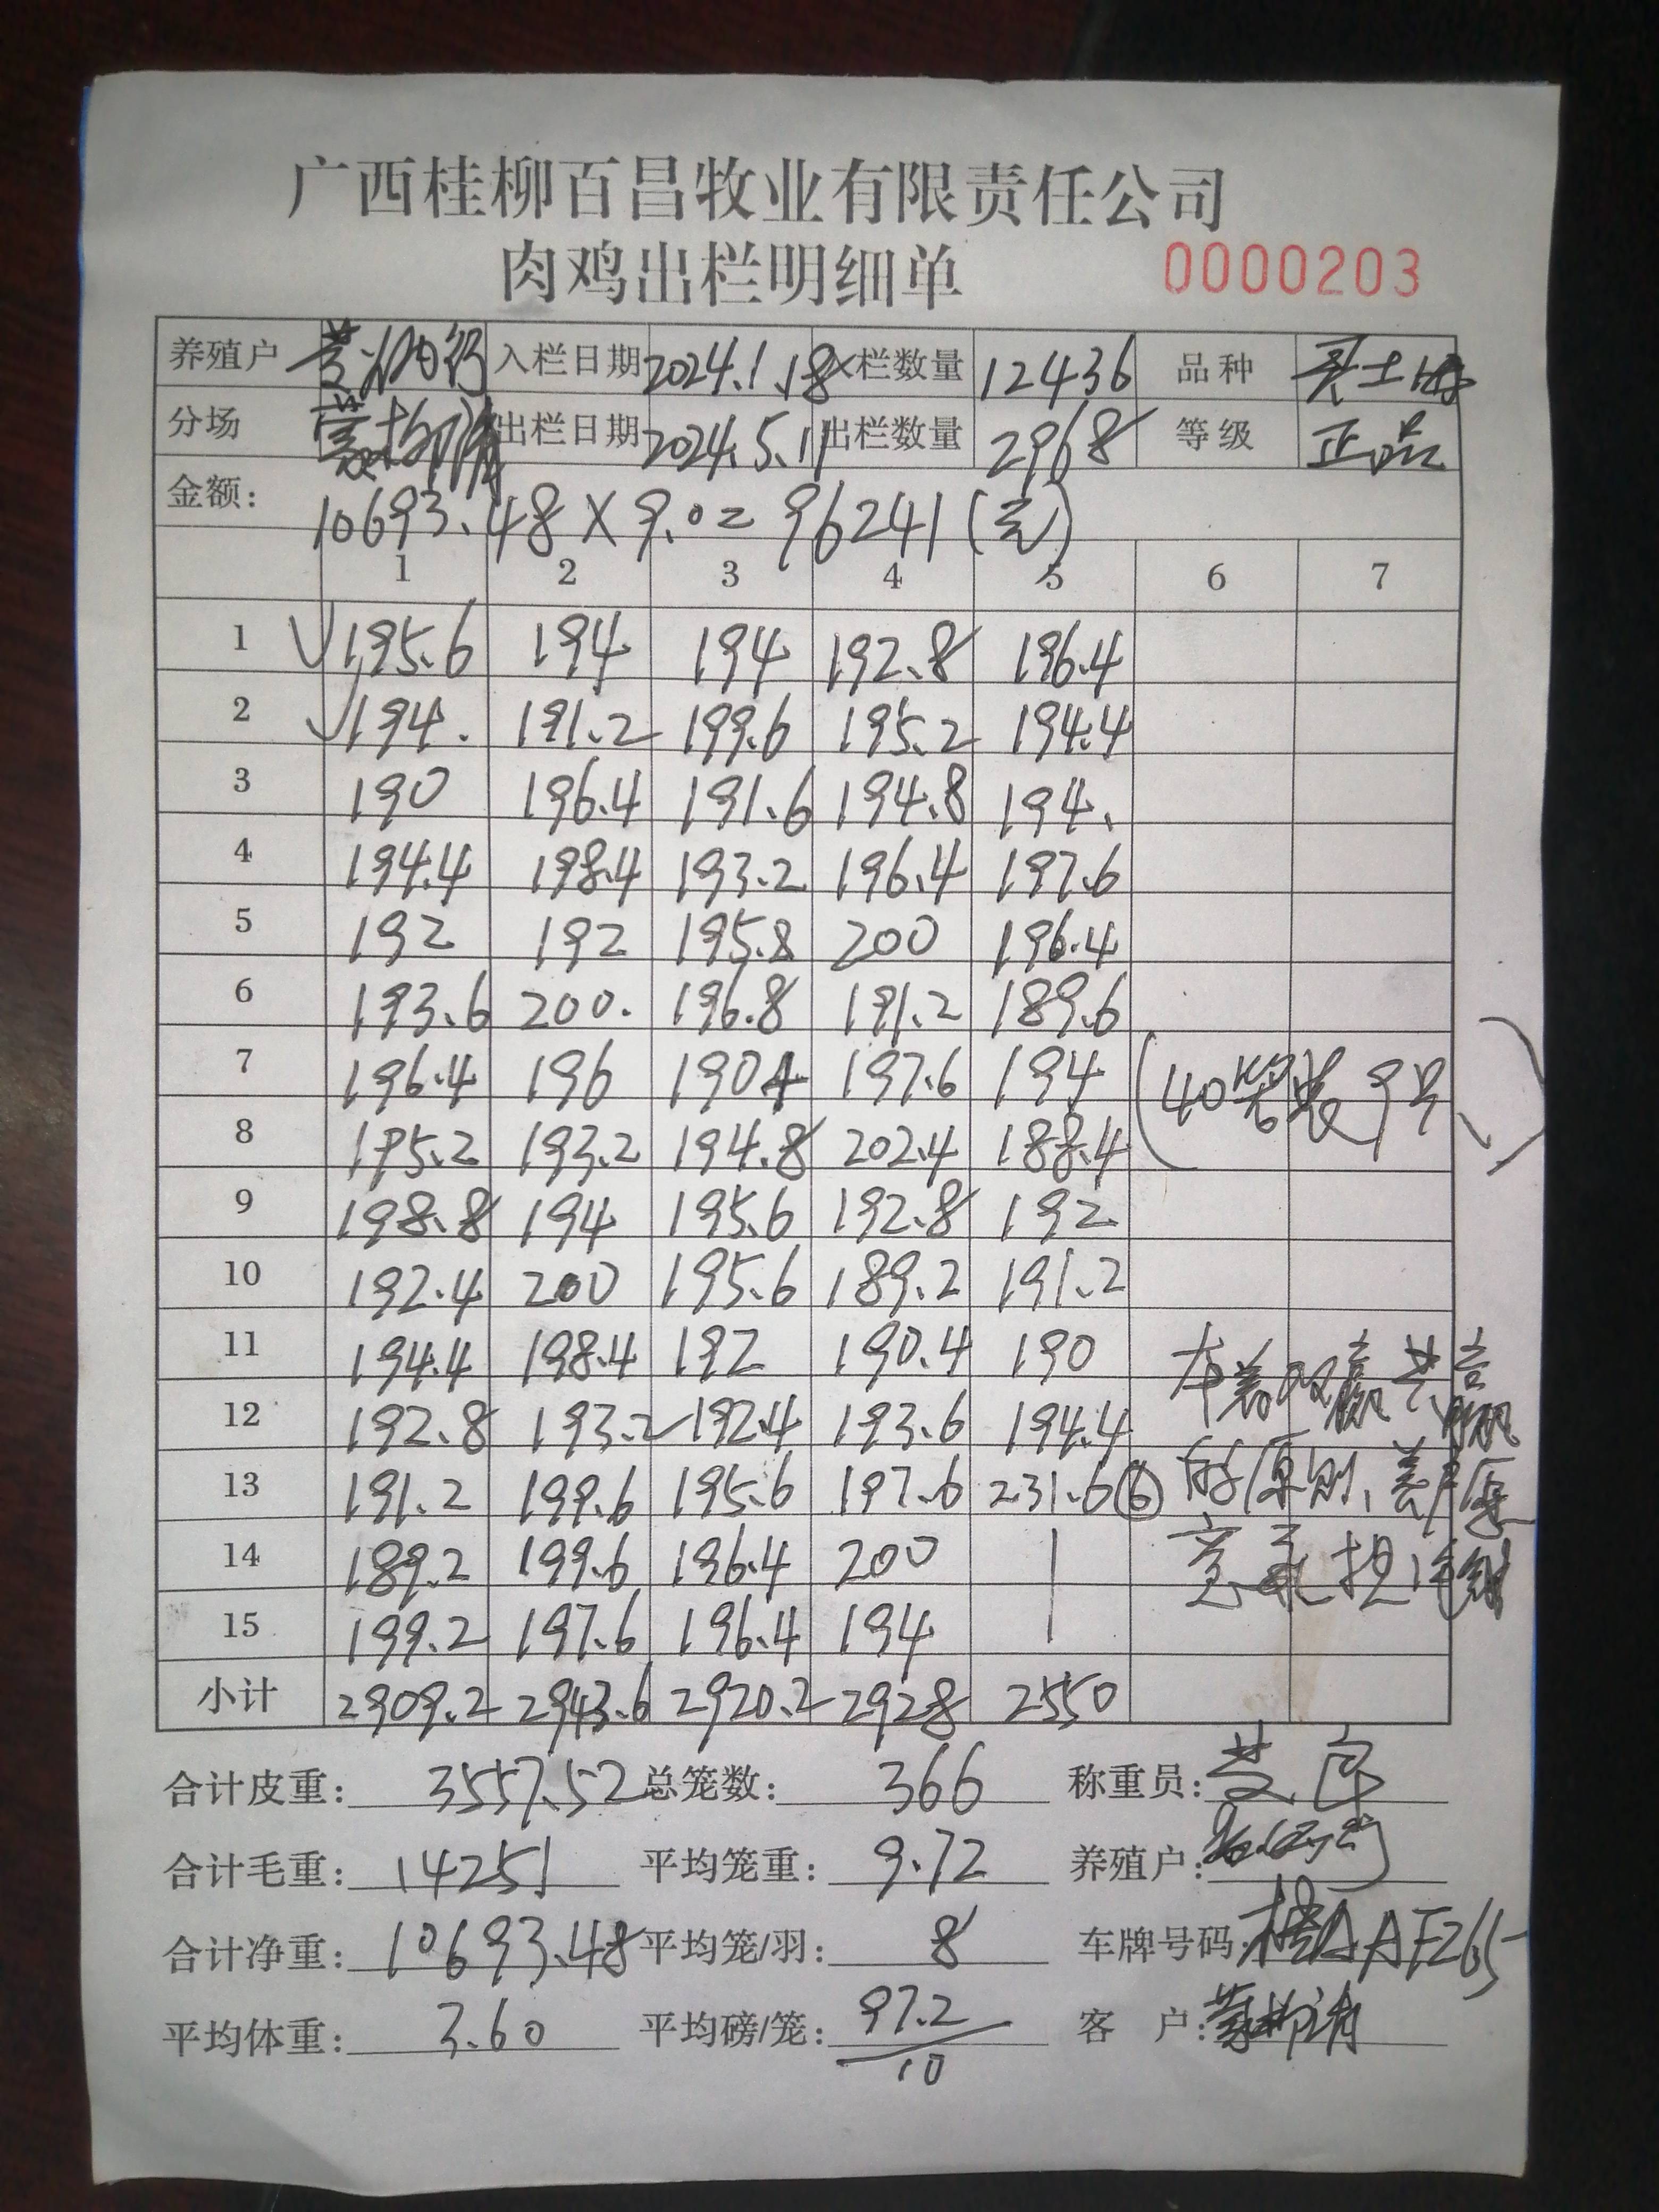 广西桂柳百昌牧业有限责任公司
肉鸡出栏明细单 0000203
养殖户 入栏日期 2024.1.18 入栏数量 12436 品种
分场 出栏日期 2024.5.11 出栏数量 2968 等级 正品
金额: 10693.48×9.0=96241(元)
1 2 3 4 5 6 7
1 195.6 194 194 192.8 196.4
2 194. 191.2 199.6 195.2 194.4
3 190 196.4 191.6 194.8 194.
4 194.4 198.4 193.2 196.4 197.6
5 192 192 195.8 200 196.4
6 193.6 200. 196.8 191.2 189.6
7 196.4 196 190.4 197.6 194
(40笼装9只)
8 195.2 193.2 194.8 202.4 188.4
9 198.8 194 195.6 192.8 192
10 192.4 200 195.6 189.2 191.2
11 194.4 198.4 192 190.4 190
本着双赢共赢
12 192.8 193.2 192.4 193.6 194.4
13 191.2 199.6 195.6 197.6 231.6 ⑥
的原则、养户愿
14 189.2 199.6 196.4 200
意承担
15 199.2 197.6 196.4 194
小计 2909.2 2943.6 2920.2 2928 2550
合计皮重: 3557.52 总笼数: 366 称重员:
合计毛重: 14251 平均笼重: 9.72 养殖户:
合计净重: 10693.48 平均笼/羽: 8 车牌号码:
平均体重: 3.60 平均磅/笼: 97.2/10 客户: